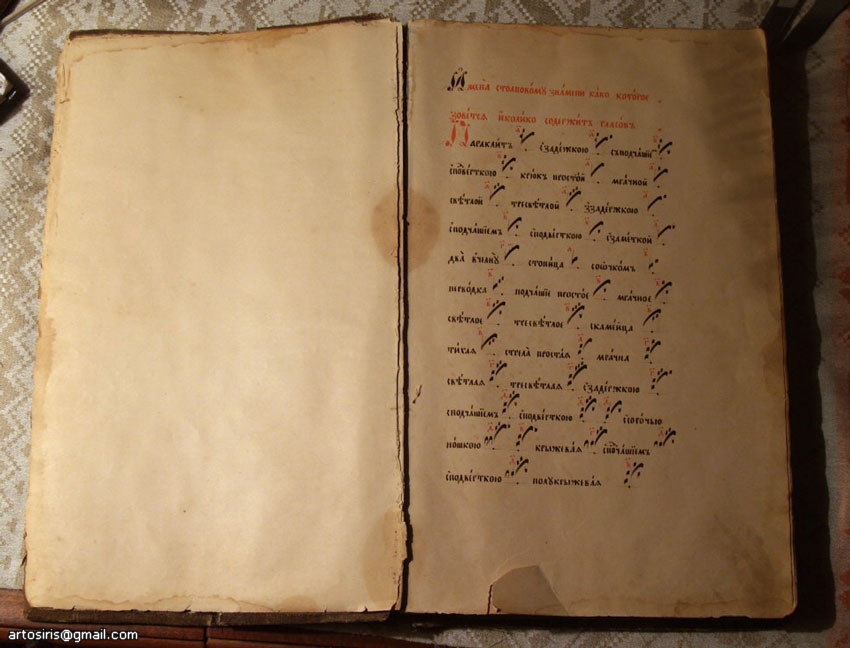 Имена̀ столповомꙋ зна́мени ка́ко кото́рое
зове́тсѧ и҆коли́ко содержи́тъ гласо́въ
Паракли́тъ с̾заде́ржкою съподча́шїемъ
с̾подве́рткою крю́къ просто́й мра́чной
свѣ́тлой тресвѣ́тлой з̾заде́ржкою
с̾подча́шїемъ с̾подве́рткою с̾замѣ́ткой
два̀ в̾челнꙋ̀ стопи́ца со ѻ҆чко́мъ
перево́дка подча́шїе просто́е мра́чное
свѣ́тлое тресвѣ́тлое скаме́йца
ти́хаѧ стрела̀ проста́ѧ мра́чна
свѣ́тлаѧ тресвѣ́тлаѧ с̾заде́ржкою
с̾подча́шїемъ с̾подве́рткою
но́жкою крыжева́ѧ с̾подча́шїемъ
с̾подве́рткою полꙋкрыжева́ѧ
artosiris@gmail.com